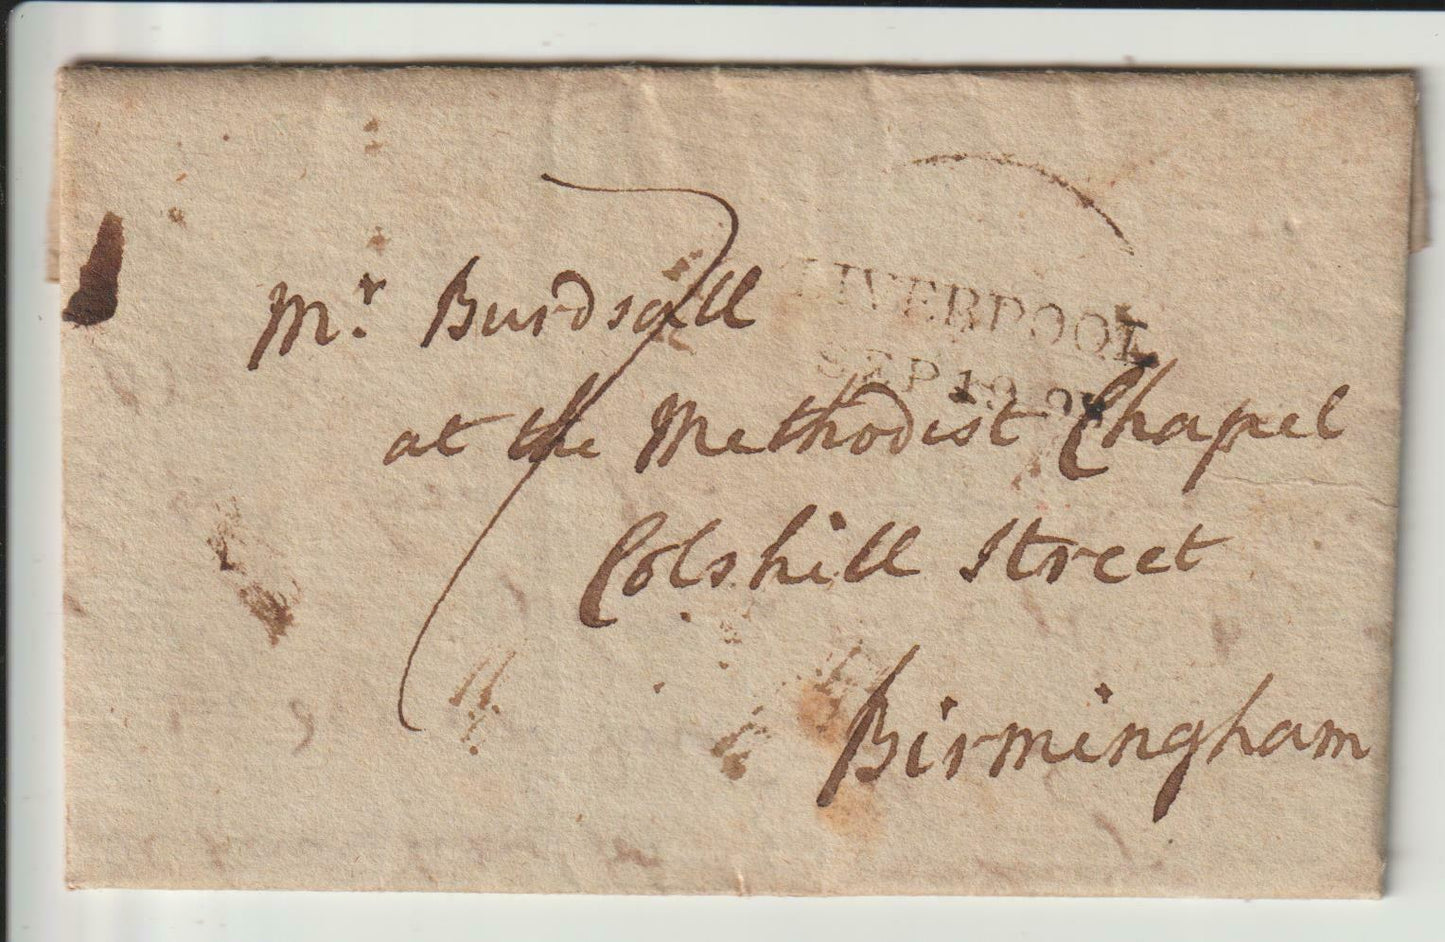 Mr. Burdsall
LIVERPOOL
SEP 19
at the Methodist Chapel
Colshill Street
Birmingham